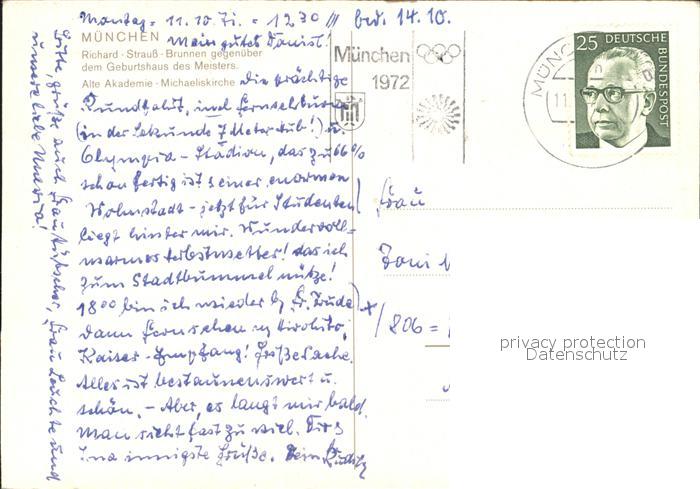 Montag = 11.10.71. = 12 30 /// bed. 14.10.
MÜNCHEN Mein gutes Tonist!
Richard - Strauß - Brunnen gegenüber
dem Geburtshaus des Meisters.
Alte Akademie · Michaeliskirche Die prächtige
Rundfahrt, incl. Fernsehturm
(in der Sekunde 7 Meter Hub!) u.
Olympia - Stadion, das zu 66 %
schon fertig ist u. einer enormen
Wohnstadt - jetzt für Studenten
liegt hinter mir. Wundervoll-
warmes Herbstwetter! das ich
zum Stadtbummel nütze!
18 00 bin ich wieder b/ Fr. Trude
dann Fernsehen m/ Hirohito,
Kaiser - Empfang! Große Sache.
Alles ist bestaunenswert u.
schön. - Aber, es langt mir bald.
Man sieht fast zu viel. Dir
innigste Grüße. Dein
Bitte, grüße auch Frau, Frau Leuchte und
unsere liebe Maria!
München
1972
MÜNC
11.
25 DEUTSCHE
BUNDESPOST
Frau
Toni
/ 806 =
privacy protection
Datenschutz